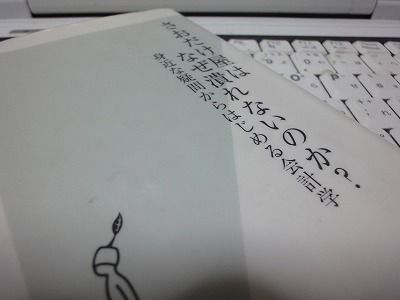 さおだけ屋は
なぜ潰れないのか?
身近な疑問からはじめる会計学